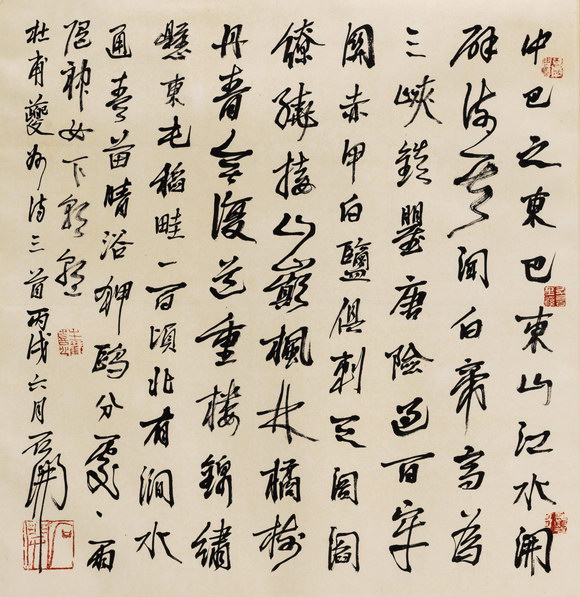 中巴之東巴東山江水開
辟流其間白帝高為
三峽鎮瞿唐險過百牢
關赤甲白鹽俱刺天閭閻
繚繞接山巔楓林橘樹
丹青合復道重樓錦繡
懸東屯稻畦一百頃北有澗水
通青苗晴浴狎鷗分處、雨
隨神女下朝朝
杜甫夔州詩三首丙戌六月石開